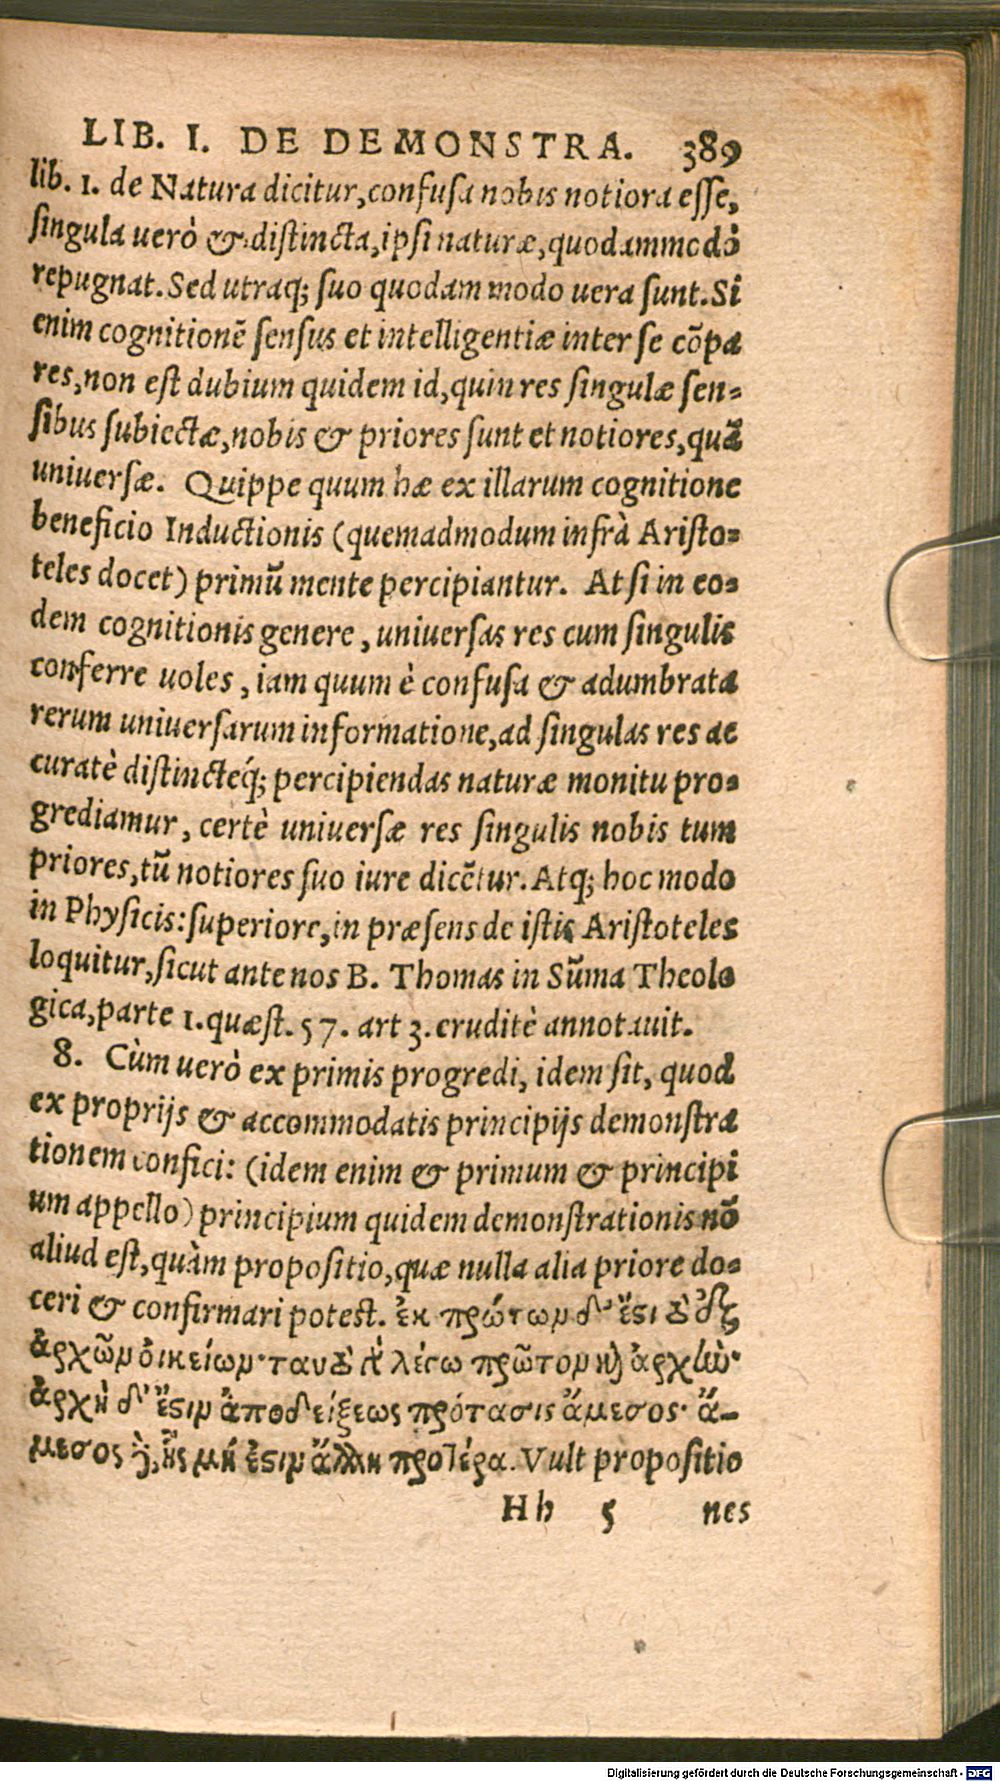 LIB. I. DE DEMONSTRA. 389
lib. 1. de Natura dicitur, confusa nobis notiora esse,
singula uerò & distincta, ipsi naturæ, quodammodò
repugnat. Sed utraq; suo quodam modo uera sunt. Si
enim cognitionē sensus et intelligentiæ inter se cōpa
res, non est dubium quidem id, quin res singulæ sen-
sibus subiectæ, nobis & priores sunt et notiores, quā
uniuersæ. Quippe quum hæ ex illarum cognitione
beneficio Inductionis (quemadmodum infrà Aristo-
teles docet) primū mente percipiantur. At si in eo-
dem cognitionis genere, uniuersas res cum singulis
conferre uoles, iam quum è confusa & adumbrata
rerum uniuersarum informatione, ad singulas res ac
curatè distincteq́; percipiendas naturæ monitu pro-
grediamur, certè uniuersæ res singulis nobis tum
priores, tū notiores suo iure dicētur. Atq; hoc modo
in Physicis: superiore, in præsens de istis Aristoteles
loquitur, sicut ante nos B. Thomas in Sūma Theolo
gica, parte 1. quæst. 57. art 3. eruditè annotauit.
8. Cùm uerò ex primis progredi, idem sit, quod
ex proprijs & accommodatis principijs demonstra
tionem confici: (idem enim & primum & principi
um appello) principium quidem demonstrationis nō
aliud est, quàm propositio, quæ nulla alia priore do-
ceri & confirmari potest. ἐκ πρώτων δ' ἔστι τὸ ἐξ
ἀρχῶν οἰκείων· ταυτὸ γὰ λέγω πρῶτον καὶ ἀρχὴν·
ἀρχὴ δ' ἔστιν ἀποδείξεως πρότασις ἄμεσος· ἄ-
μεσος δὲ, ἧς μή ἐστιν ἄλλη προτέρα. Vult propositio
Hh 5 nes
Digitalisierung gefördert durch die Deutsche Forschungsgemeinschaft - DFG